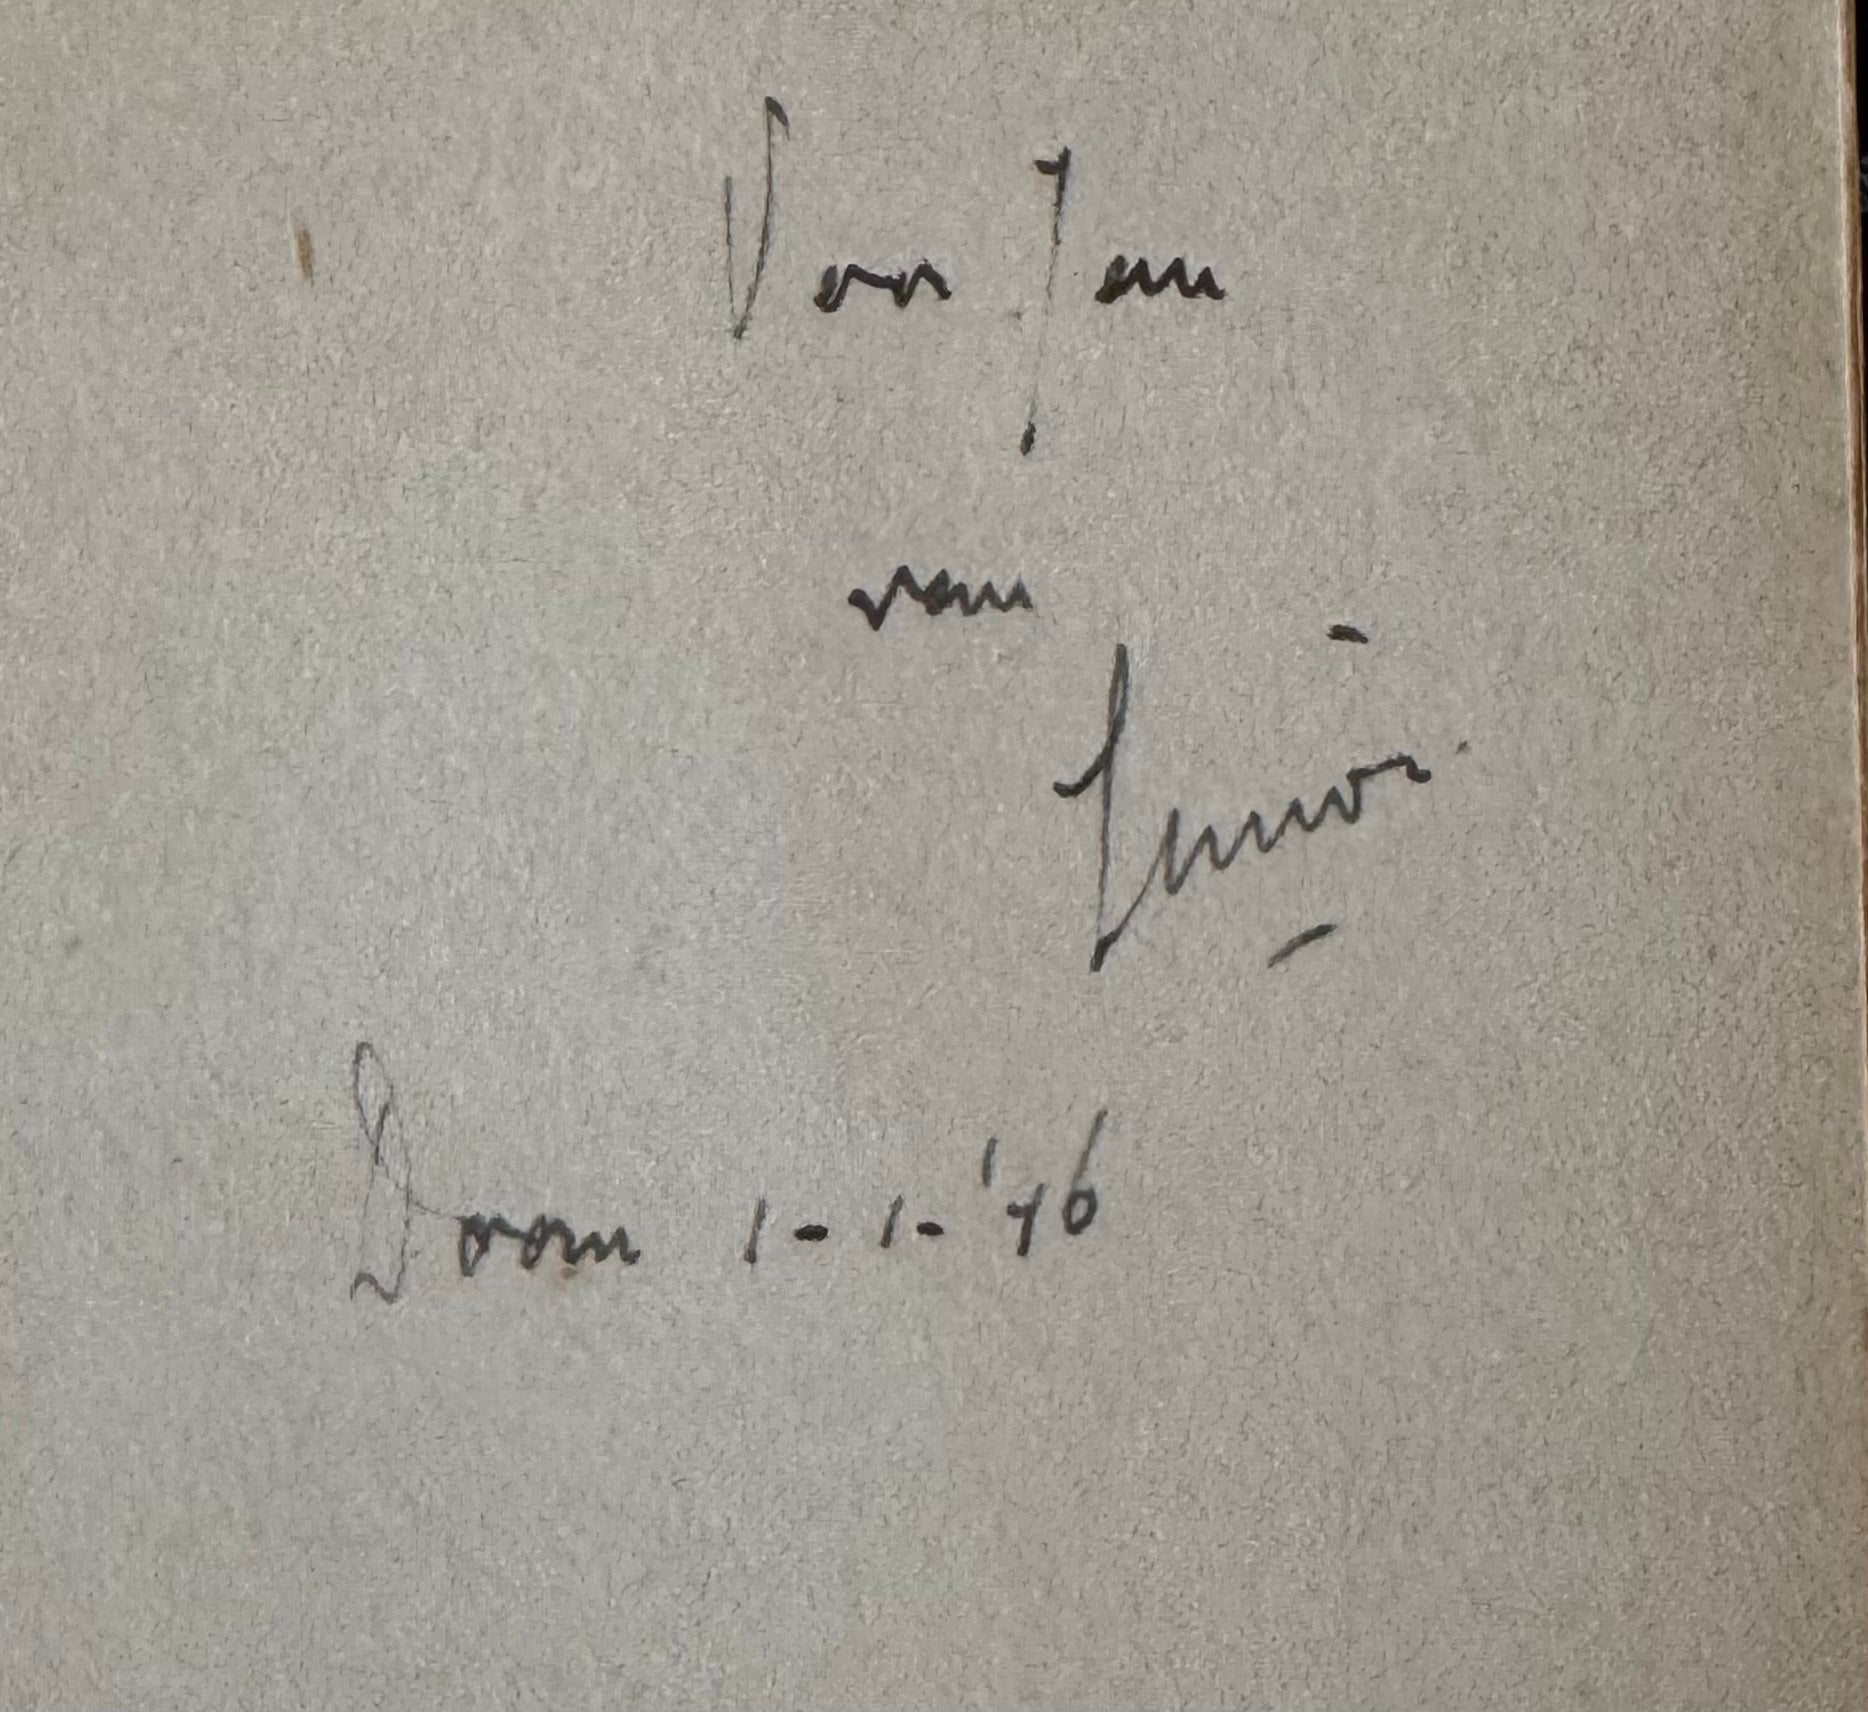 Voor Jan
van
Junior.
Doorn 1-1-'46